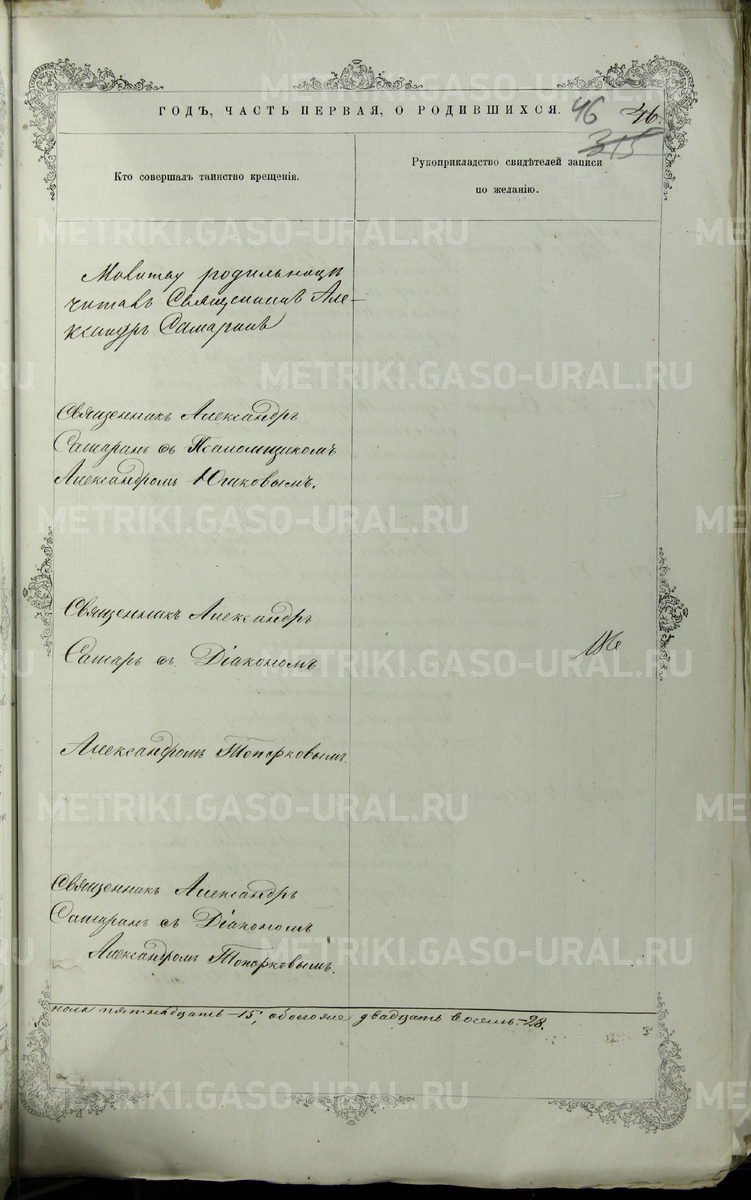 ГОДЪ, ЧАСТЬ ПЕРВАЯ, О РОДИВШИХСЯ.
46
46.
315
Кто совершалъ таинство крещенія.
Рукоприкладство свидѣтелей записи
по желанію.
родильницѣ
читалъ Священникъ Але-
ксандръ
Священникъ Александръ
съ Псаломщикомъ
Александромъ Юшковымъ.
Священникъ Александръ
съ Діакономъ
Александромъ Топорковымъ.
Священникъ Александръ
съ Діакономъ
Александромъ Топорковымъ.
пола пятнадцать -15; обоего двадцать восемь -28.
METRIKI.GASO-URAL.RU